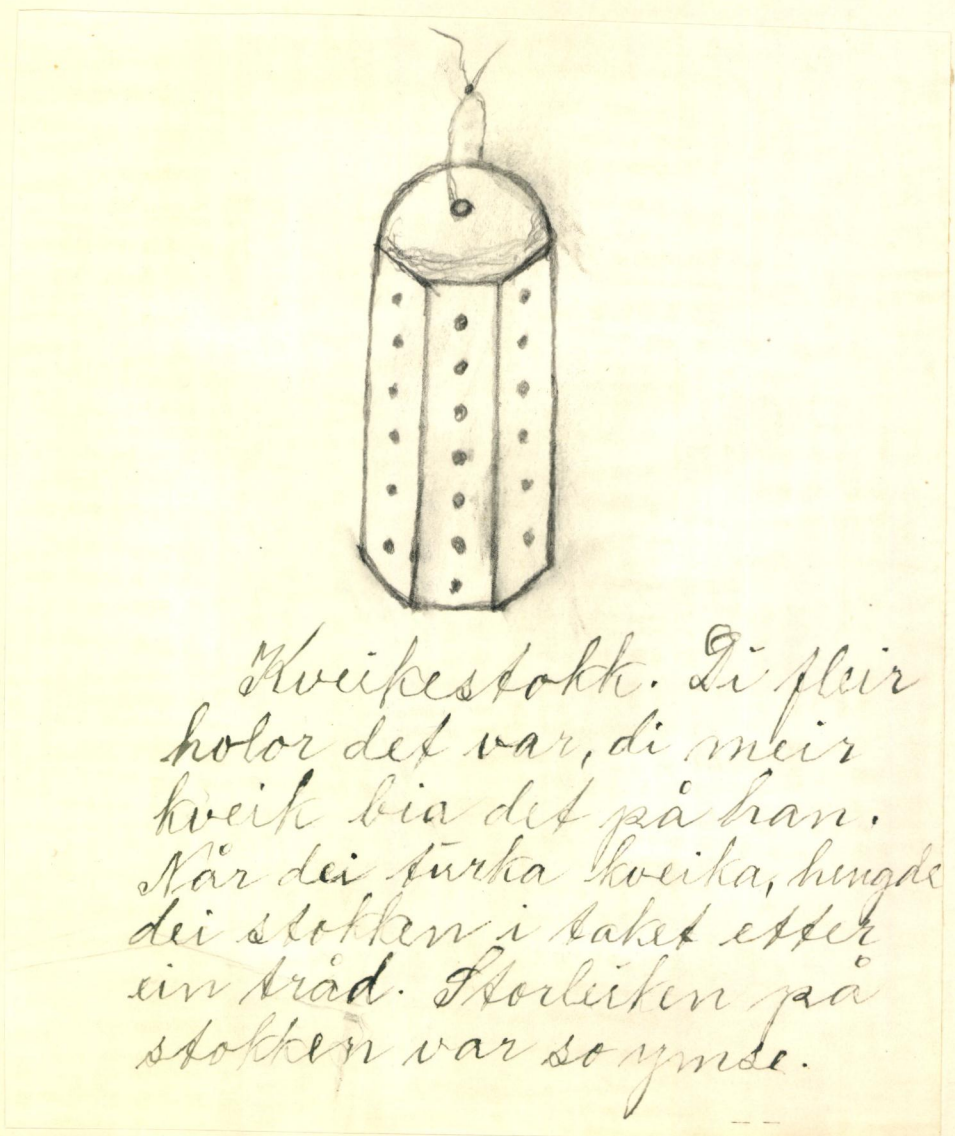 Kveikestokk. Di fleir
holor det var, di meir
kveik bia det på han.
Når dei turka kveika, hengde
dei stokken i taket etter
ein tråd. Storleiken på
stokken var so ymse.